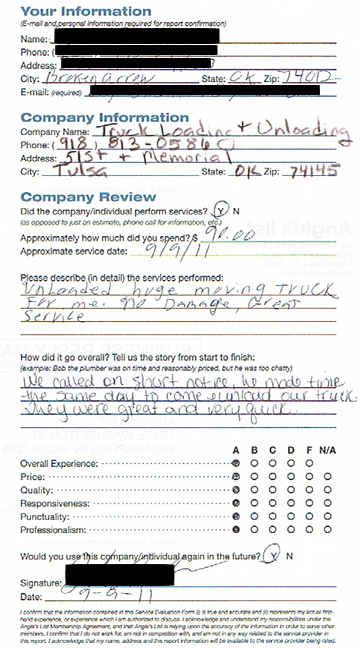 Your Information
(E-mail and personal information required for report confirmation)
Name:
Phone: (
Address:
City: Broken Arrow State: OK Zip: 74012
E-mail: (required)
Company Information
Company Name: Truck Loading + Unloading
Phone: (918) 813-0586
Address: 51st + Memorial
City: Tulsa State: OK Zip: 74145
Company Review
Did the company/individual perform services? Y N
(as opposed to just an estimate, phone call for information, etc.)
Approximately how much did you spend? $ 90.00
Approximate service date: 9/9/11
Please describe (in detail) the services performed:
Unloaded huge moving TRUCK
For me. No Damage, Great
Service
How did it go overall? Tell us the story from start to finish:
(example: Bob the plumber was on time and reasonably priced, but he was too chatty)
We called on short notice, he made time
the same day to come & unload our truck.
They were great and very quick.
A B C D F N/A
Overall Experience:
Price:
Quality:
Responsiveness:
Punctuality:
Professionalism:
Would you use this company/individual again in the future? Y N
Signature:
Date: 9-9-11
I confirm that the information contained in this Service Evaluation Form (i) is true and accurate and (ii) represents my actual first-
hand experience, or experience which I am authorized to discuss. I acknowledge and understand my responsibilities under the
Angie's List Membership Agreement, and that Angie's List is relying upon the accuracy of the information in order to serve other
members. I confirm that I do not work for, am not in competition with, and am not in any way related to the service provider in
this report. I acknowledge that my name, address and this report information will be available to the service provider being rated.